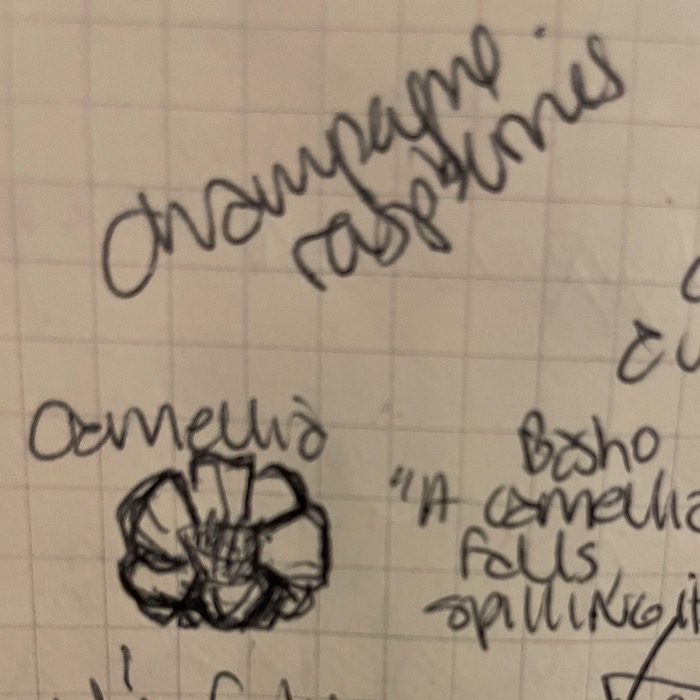 champagne
raspburries
Camellia
Basho
"A camellia
falls
spilling it